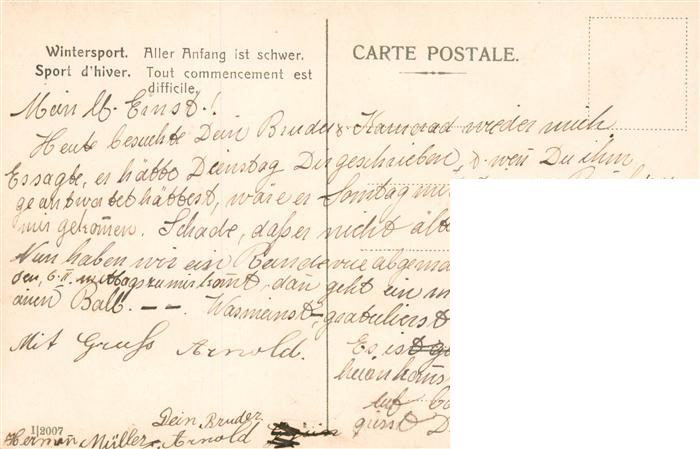 Wintersport. Aller Anfang ist schwer.
Sport d'hiver. Tout commencement est
difficile.
CARTE POSTALE.
Mein lb. Ernst!
Heute besuchte Dein Bruder & Kamerad wieder mich.
Es sagte, er hätte Dienstag Dir geschrieben, & wen̄ Du ihm
geantwortet hättest, wäre er Sonntag
mir gekom̄en. Schade, daß er nicht
Nun haben wir ein Rendevue
den, 6. II. mittags zu mir kom̄t, dan geht
einen Ball. – –. Was meinst, gratulierst
Mit Gruss Arnold.
Es ist
auf
giesst D
Dein Bruder
Herman̄ Müller, Arnold
1|2007